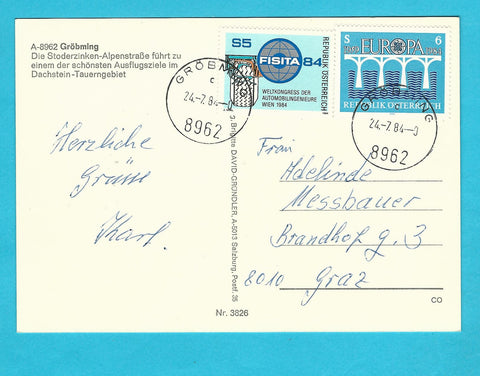 A-8962 Gröbming
Die Stoderzinken-Alpenstraße führt zu
einem der schönsten Ausflugsziele im
Dachstein-Tauerngebiet
S5
FISITA 84
WELTKONGRESS DER
AUTOMOBILINGENIEURE
WIEN 1984
REPUBLIK ÖSTERREICH
S 6
EUROPA
1984
REPUBLIK ÖSTERREICH
GRÖBMING
c
24.-7.84-0
8962
GRÖBMING
24.-7.84-0
8962
Herzliche
Grüsse
Karl.
Brigitte DAVID-GRÜNDLER, A-5013 Salzburg, Postf. 35
Frau
Adelinde
Messbauer
Brandhof g. 3
8010 Graz
CO
Nr. 3826